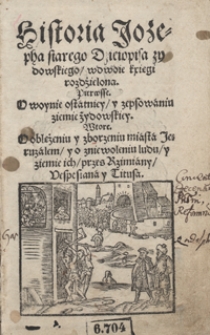 Historia Joze-
pha starego Dzieiopisa zy
dowskiego/ wdwoie kxiegi
rozdzielona.
Pierwsze.
O woynie ostatniey/ y zepsowaniu
ziemie żydowskiey.
Wtore.
O obleżeniu y zborzeniu miasta Je-
ruzalem/ y o zniewoleniu ludu/ y
ziemie ich/ przez Rzimiany/
Vespesiana y Titusa.
6.704